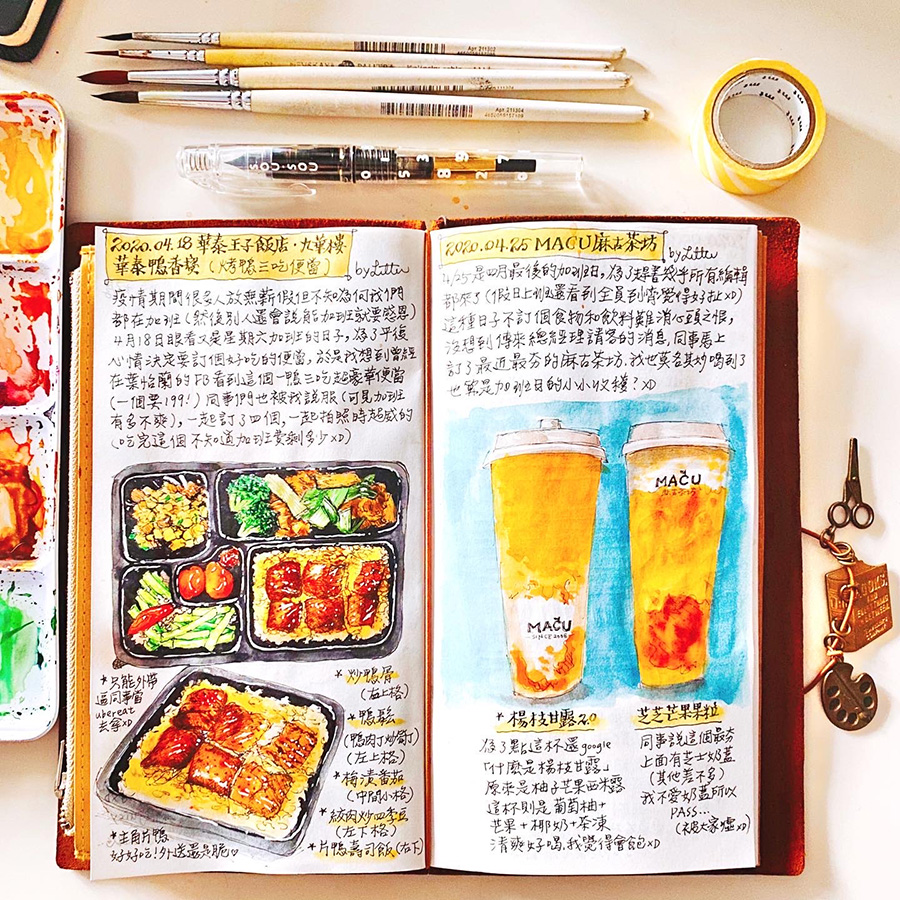 Art 211302
Art 211304
2020.04.18 華泰王子飯店・九華樓
華泰鴨香寶(烤鴨三吃便當)
by Litter
疫情期間很多人放無薪假但不知為何我們
都在加班(然後別人還會說能加班就要感恩)
4月18日眼看又是星期六加班的日子,為了平復
心情決定要訂個好吃的便當,於是我想到曾經
在葉怡蘭的FB看到這個一鴨三吃超豪華便當
(一個要199!)同事們也被我說服(可見加班
有多不爽),一起訂了四個,一起拍照時超威的
(吃完這個不知道加班費剩多少XD)
*只能外帶
這同事當
ubereat
去拿XD
*炒鴨骨
(右上格)
*鴨鬆
(鴨肉丁炒筍丁)
(左上格)
*梅漬番茄
(中間小格)
*絞肉炒四季豆
(左下格)
*片鴨壽司飯(右下)
*主角片鴨
好好吃!外送還是脆♡
2020.04.25 MACU麻古茶坊
by Litter
4/25是四月最後的加班日,為了趕書幾乎所有編輯
都來了(假日上班還看到全員到齊覺得好扯XD)
這種日子不訂個食物和飲料難消心頭之恨,
沒想到傳來總經理請客的消息,同事馬上
訂了最近最夯的麻古茶坊,我也莫名其妙喝到了
也算是加班日的小小收穫?XD
MACU
SINCE 2008
MACU
麻古茶坊
*楊枝甘露2.0
為了點這杯還google
「什麼是楊枝甘露」
原來是柚子芒果西米露
這杯則是葡萄柚+
芒果+椰奶+茶凍
清爽好喝,我覺得會飽XD
芝芝芒果果粒
同事說這個最夯
上面有芝士奶蓋
(其他差不多)
我不愛奶蓋所以
PASS...
(被大家噓XD)